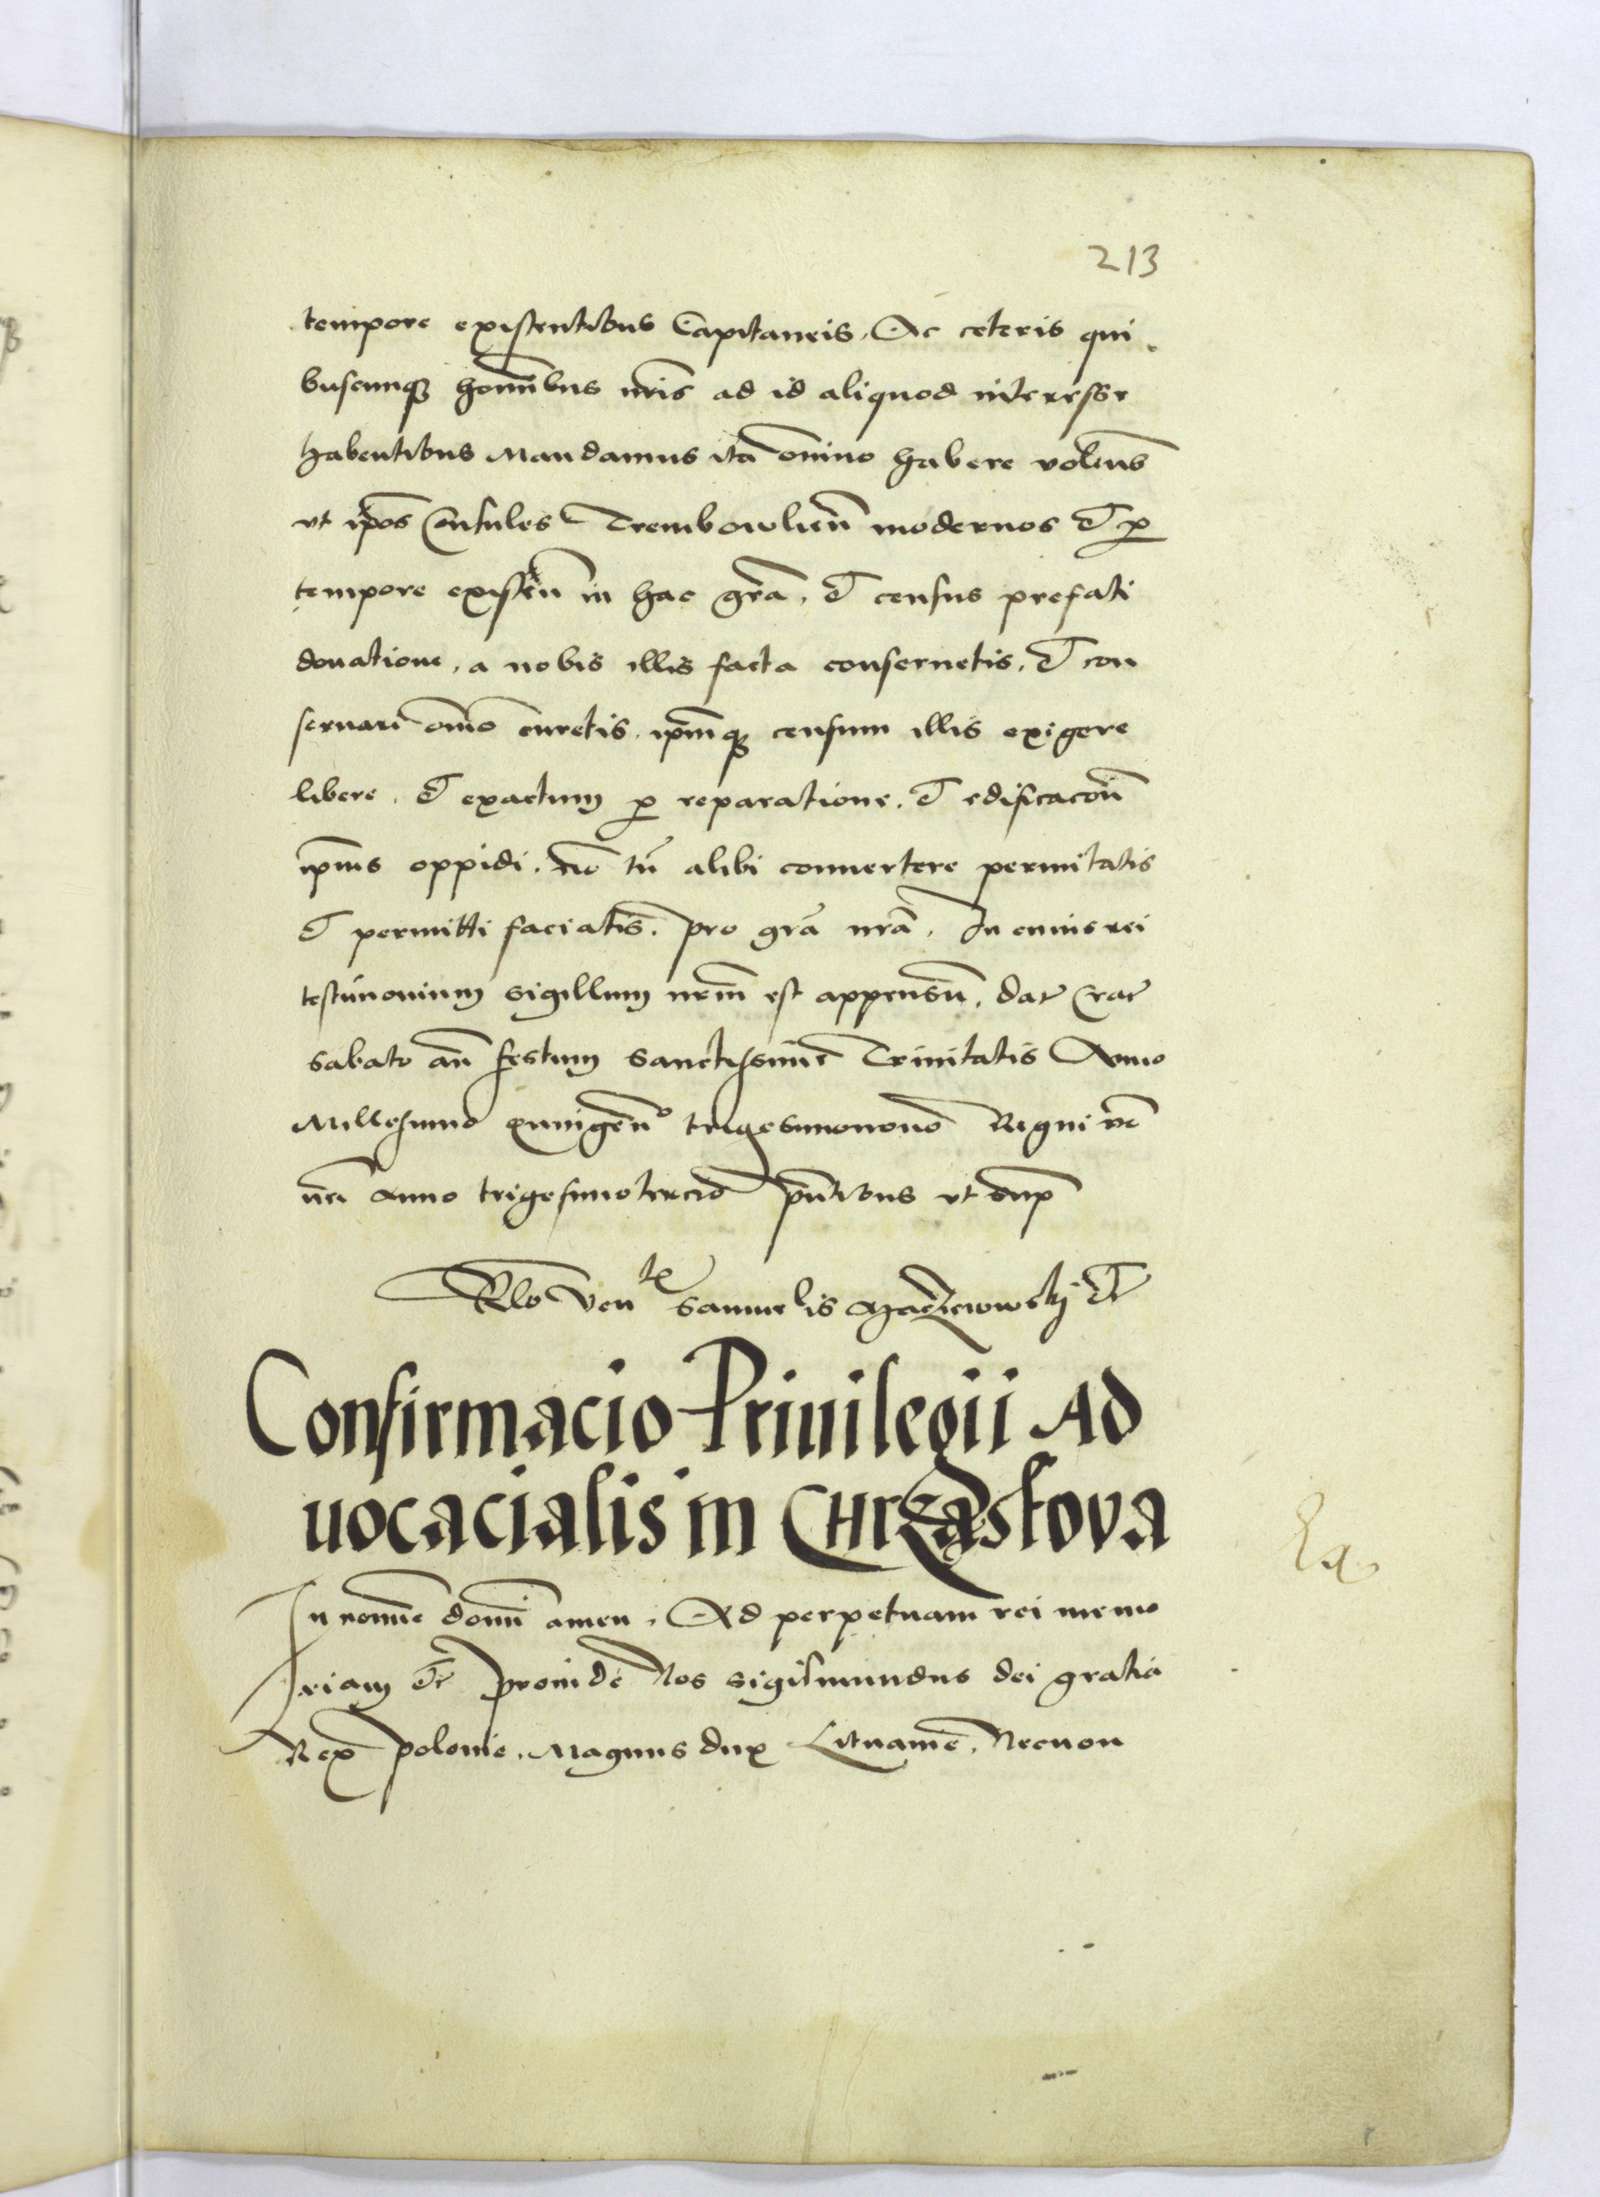 213
tempore existentibus Capitaneis, Ac ceteris qui
buscunq homībus nr̄is ad id aliquod interesse
habentibus Mandamus ita om̄ino habere volum̄
vt ip̄os Consules Trembowlien̄ modernos et p
tempore existen̄ in hac gr̄a, et census prefati
donatione, a nobis illis facta conseruetis, et con
seruari om̄o curetis, ip̄mq censum illis exigere
libere, et exactum p reparatione, et edificacōn̄
ip̄ius oppidi, nō tn̄ alibi conuertere permitatis
et permitti faciatis, pro gr̄a nr̄a, In cuius rei
testimonium sigillum nr̄m est appensū, dat Crac
sabato an̄ festum sanctissime Trinitatis Anno
Millesimo quingen̄o trigesimonono Regni v̄o
nr̄i anno trigesimotercio pn̄tibus vt sup
Rlo Ven Samuelis Macieiowskj etc
Confirmacio Priuilegii Ad
uocacialis in Chrząstova
In nomīe domī amen, Ad perpetuam rei memo
riam etc proinde Nos Sigismundus dei gratia
Rex polonie, Magnus dux Lituanie, Necnon